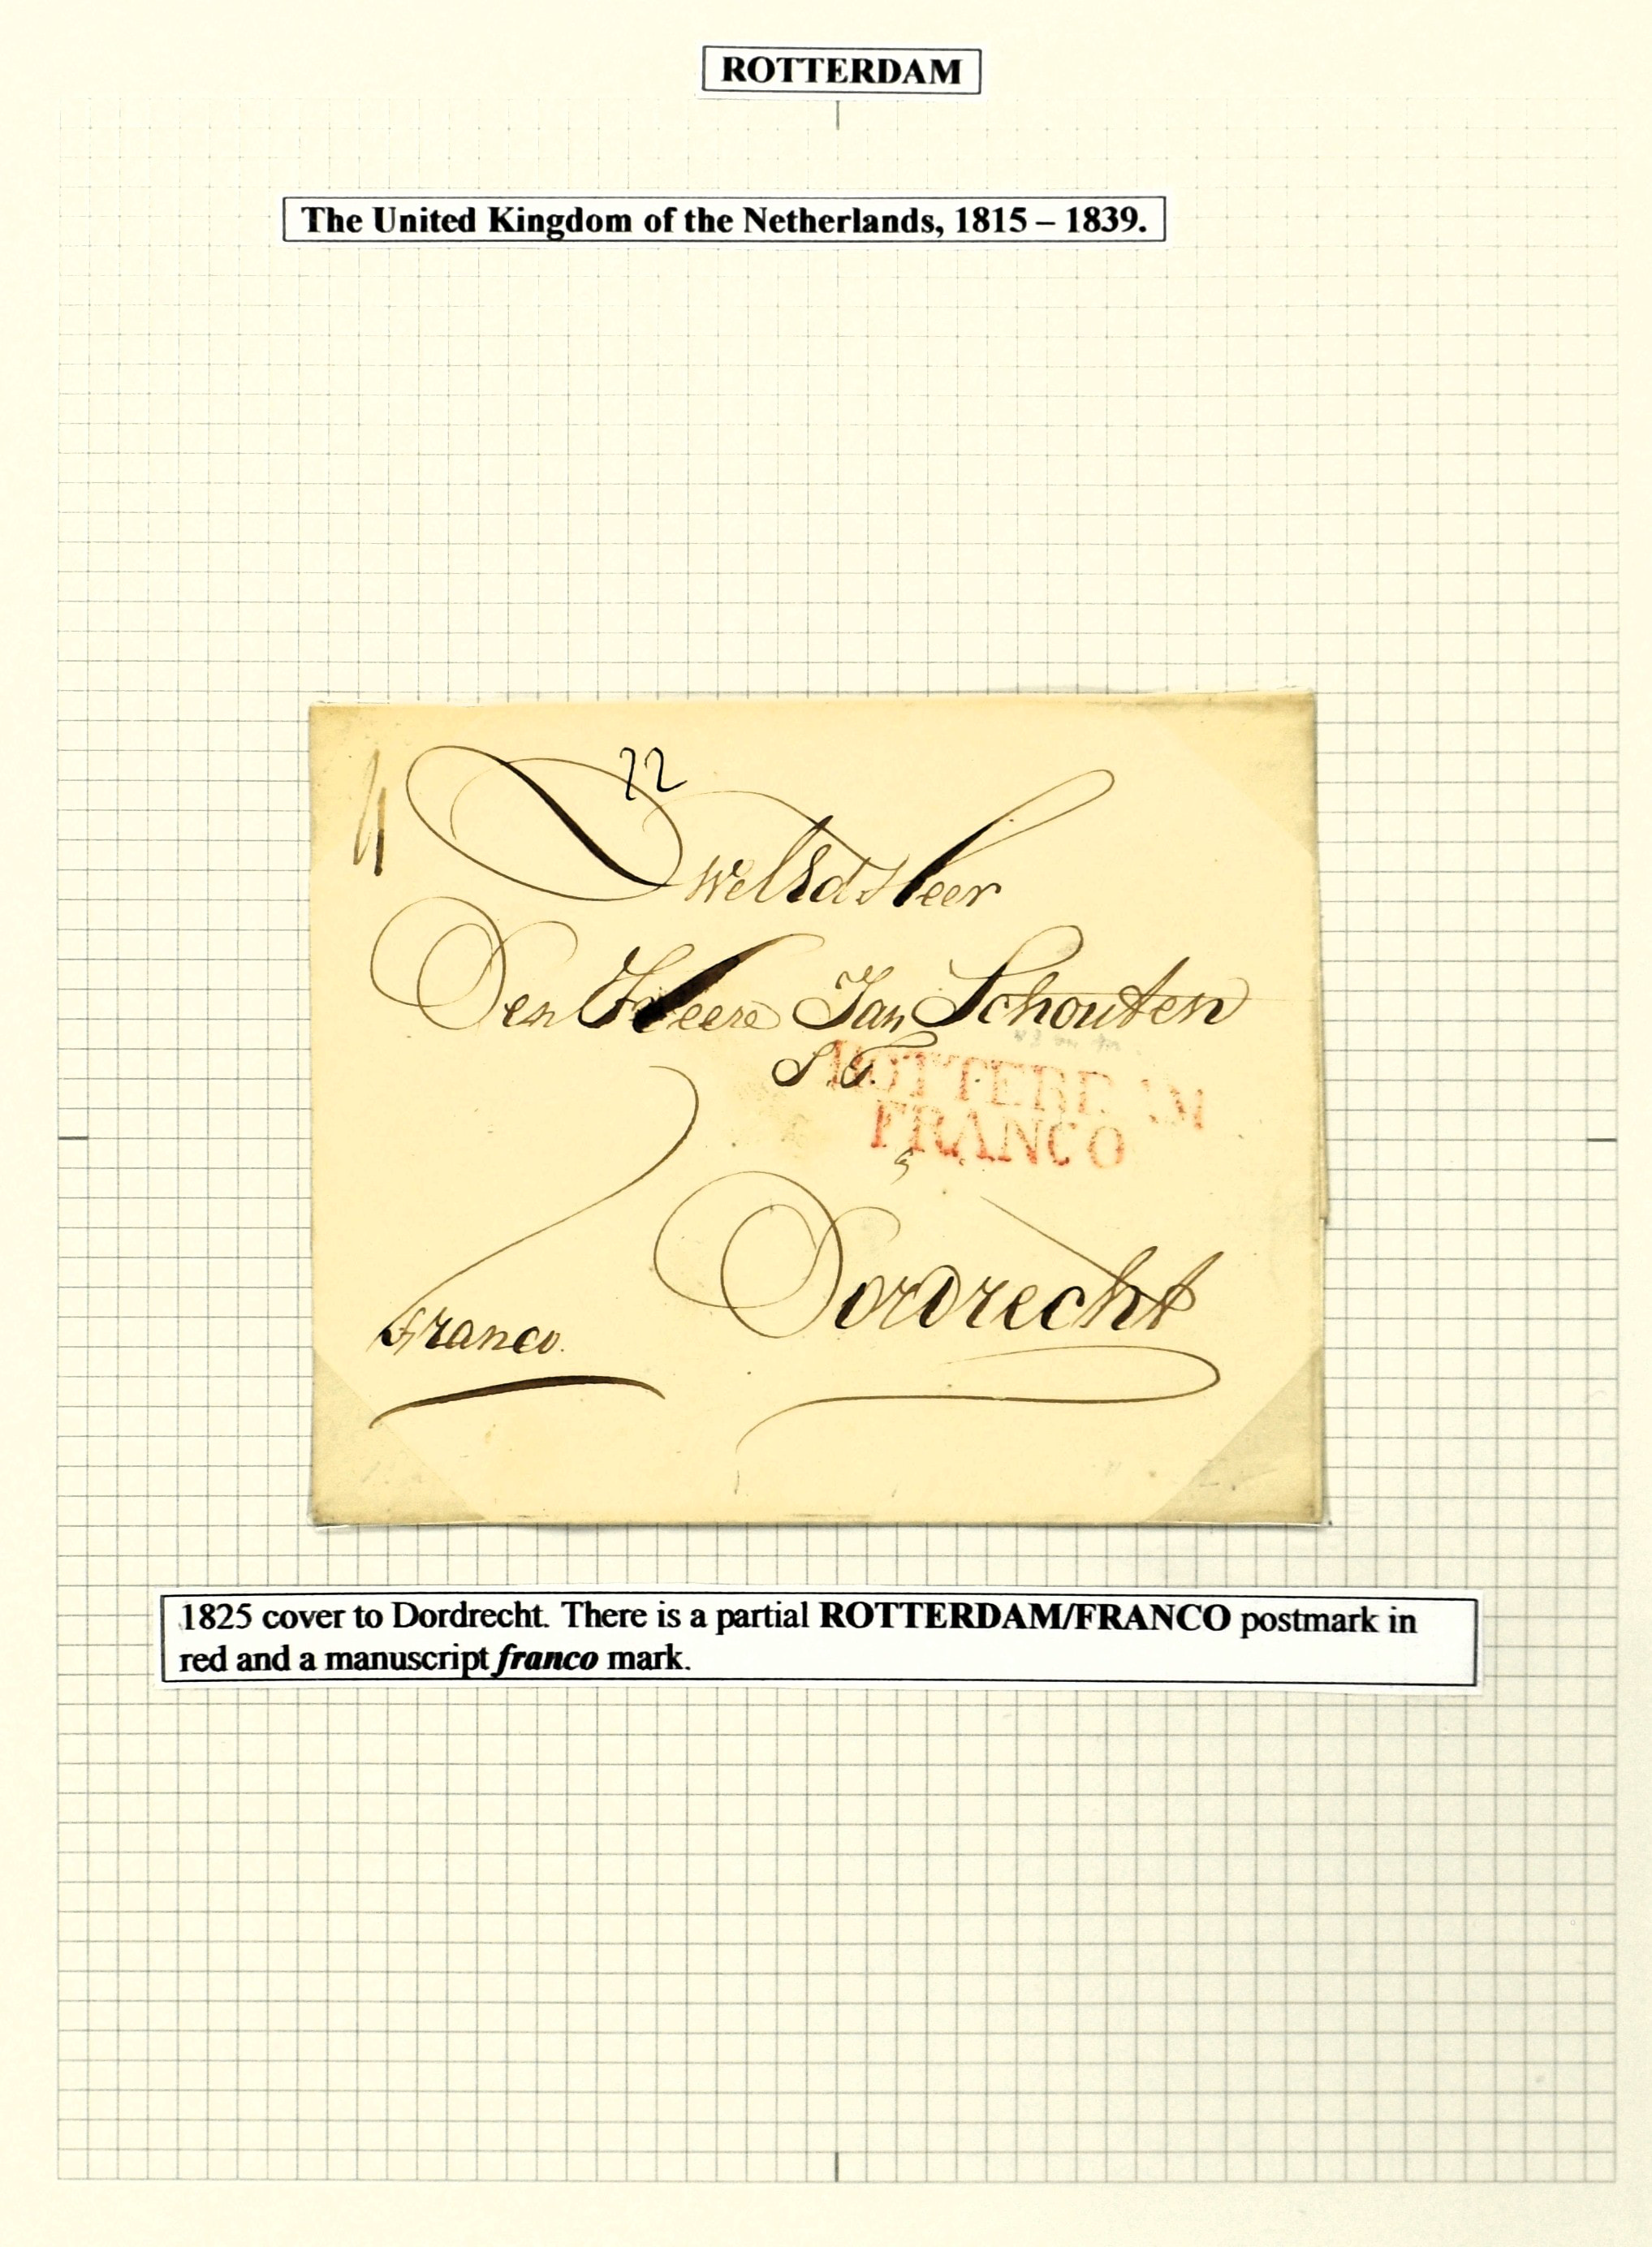 ROTTERDAM
The United Kingdom of the Netherlands, 1815 – 1839.
22
Heer
Den Heere Jan Schouten
S.T.
ROTTERDAM
FRANCO
Dordrecht
franco.
1825 cover to Dordrecht. There is a partial ROTTERDAM/FRANCO postmark in
red and a manuscript franco mark.